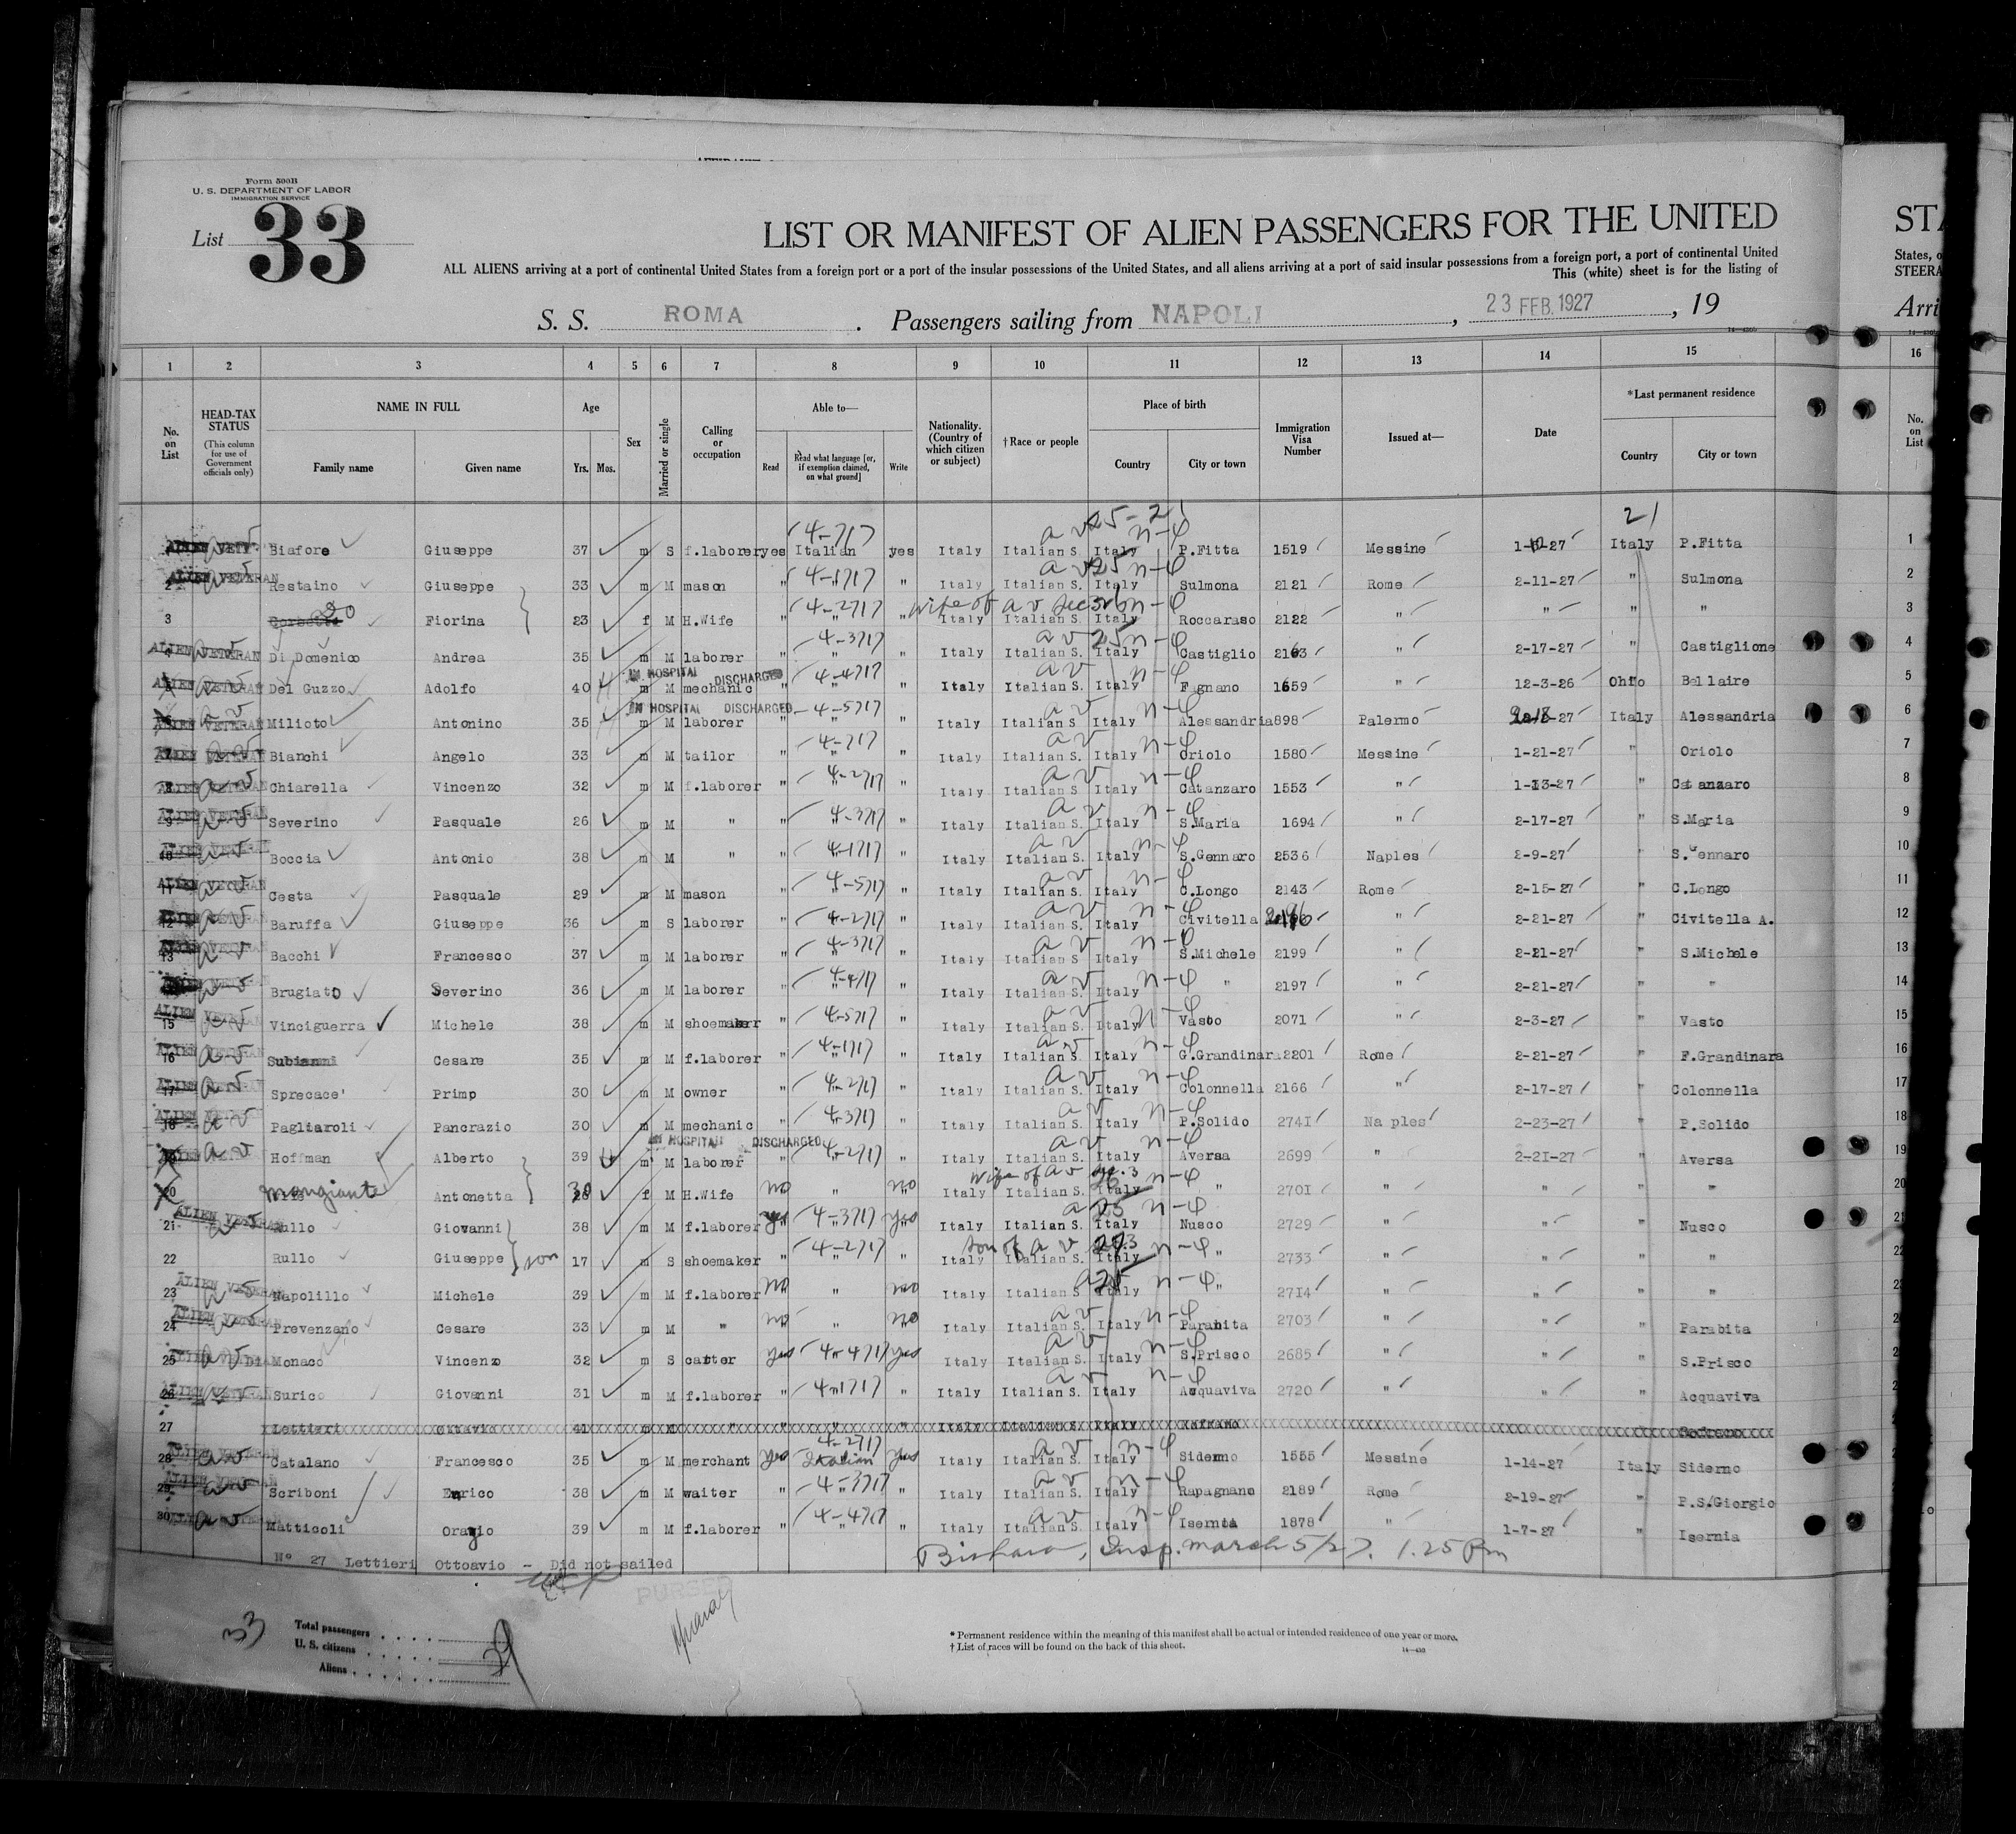 Form 500B
U. S. DEPARTMENT OF LABOR
IMMIGRATION SERVICE
List 33
LIST OR MANIFEST OF ALIEN PASSENGERS FOR THE UNITED
ALL ALIENS arriving at a port of continental United States from a foreign port or a port of the insular possessions of the United States, and all aliens arriving at a port of said insular possessions from a foreign port, a port of continental United
This (white) sheet is for the listing of
S. S. ROMA. Passengers sailing from NAPOLI, 23 FEB. 1927, 19
1 2 3 4 5 6 7 8 9 10 11 12 13 14 15
No. on List
HEAD-TAX STATUS (This column for use of Government officials only)
NAME IN FULL Family name Given name
Age Yrs. Mos.
Sex
Married or single
Calling or occupation
Able to— Read Read what language [or, if exemption claimed, on what ground] Write
Nationality. (Country of which citizen or subject)
†Race or people
Place of birth Country City or town
Immigration Visa Number
Issued at—
Date
*Last permanent residence Country City or town
ALIEN Biafore Giuseppe 37 m S f.laborer yes Italian yes Italy Italian S. Italy P.Fitta 1519 Messine 27 Italy P.Fitta
2 ALIEN VETERAN Restaino Giuseppe 33 m M mason " 4-1717 " Italy Italian S. Italy Sulmona 2121 Rome 2-11-27 " Sulmona
3 Fiorina 23 f M H.Wife " 4-2717 " wife of a v Italy Italian S. Italy Roccaraso 2122 " " " "
ALIEN VETERAN Di Domenico Andrea 35 m M laborer " 4-3717 " Italy Italian S. Italy Castiglio 2163 " 2-17-27 " Castiglione
IN HOSPITAL DISCHARGED
Del Guzzo Adolfo 40 m M mechanic " 4-4717 " Italy Italian S. Italy Fagnano 1659 " 12-3-26 Ohio Bellaire
IN HOSPITAL DISCHARGED
ALIEN VETERAN Milioto Antonino 35 m M laborer " 4-5717 " Italy Italian S. Italy Alessandria 898 Palermo 27 Italy Alessandria
Bianchi Angelo 33 m M tailor " 4-717 " Italy Italian S. Italy Oriolo 1580 Messine 1-21-27 " Oriolo
8 Chiarella Vincenzo 32 m M f.laborer " 4-2717 " Italy Italian S Italy Catanzaro 1553 " 1-13-27 " Catanzaro
9 Severino Pasquale 26 m M " " 4-3717 " Italy Italian S. Italy S.Maria 1694 " 2-17-27 " S.Maria
10 Boccia Antonio 38 m M " " 4-1717 " Italy Italian S. Italy S.Gennaro 2536 Naples 2-9-27 " S.Gennaro
11 Cesta Pasquale 29 m M mason " 4-5717 " Italy Italian S. Italy C.Longo 2143 Rome 2-15-27 " C.Longo
12 Baruffa Giuseppe 36 m S laborer " 4-2717 " Italy Italian S. Italy Civitella " 2-21-27 " Civitella A.
13 Bacchi Francesco 37 m M laborer " 4-3717 " Italy Italian S Italy S.Michele 2199 " 2-21-27 " S.Michele
Brugiato Severino 36 m M laborer " 4-4717 " Italy Italian S. Italy " 2197 " 2-21-27 " "
15 ALIEN Vinciguerra Michele 38 m M shoemaker " 4-5717 " Italy Italian S. Italy Vasto 2071 " 2-3-27 " Vasto
16 Subianni Cesare 35 m M f.laborer " 4-1717 " Italy Italian S. Italy G.Grandinara 2201 Rome 2-21-27 " F.Grandinara
17 Sprecace' Primp 30 m M owner " 4-2717 " Italy Italian S. Italy Colonnella 2166 " 2-17-27 " Colonnella
18 Pagliaroli Pancrazio 30 m M mechanic " 4-3717 " Italy Italian S. Italy P.Solido 2741 Naples 2-23-27 " P.Solido
IN HOSPITAL DISCHARGED
Hoffman Alberto 39 m M laborer " 4-2717 " Italy Italian S. Italy Aversa 2699 " 2-21-27 " Aversa
20 Mangiante Antonetta f M H.Wife no " no Italy Italian S. Italy " 2701 " " " "
21 ALIEN VETERAN Rullo Giovanni 38 m M f.laborer yes 4-3717 yes Italy Italian S. Italy Nusco 2729 " " " Nusco
22 Rullo Giuseppe son 17 m S shoemaker " 4-2717 " son of a v Italy Italian S. Italy " 2733 " " " "
23 ALIEN VETERAN Napolillo Michele 39 m M f.laborer no " no Italy Italian S. Italy " 2714 " " " "
24 ALIEN VETERAN Prevenzano Cesare 33 m M " no " no Italy Italian S. Italy Parabita 2703 " " " Parabita
25 Di Monaco Vincenzo 32 m S carter yes 4-4717 yes Italy Italian S. Italy S.Prisco 2685 " " " S.Prisco
26 Surico Giovanni 31 m M f.laborer " 4-1717 " Italy Italian S. Italy Acquaviva 2720 " " " Acquaviva
27 Lettieri Ottavio 41 m M " " " " Italy Italian S. Italy
28 Catalano Francesco 35 m M merchant yes 4-2717 Italian yes Italy Italian S. Italy Siderno 1555 Messine 1-14-27 Italy Siderno
29 Scriboni Enrico 38 m M waiter " 4-3717 " Italy Italian S. Italy Rapagnano 2189 Rome 2-19-27 " P.S/Giorgio
30 Matticoli Orazio 39 m M f.laborer " 4-4717 " Italy Italian S. Italy Isernia 1878 " 1-7-27 " Isernia
No 27 Lettieri Ottoavio - Did not sailed
Bishara, Insp. March 5/27. 1.25 Pm
PURSER
33
Total passengers
U. S. citizens
Aliens
* Permanent residence within the meaning of this manifest shall be actual or intended residence of one year or more.
† List of races will be found on the back of this sheet.
STA
States, o
STEERA
Arri
16
No. on List